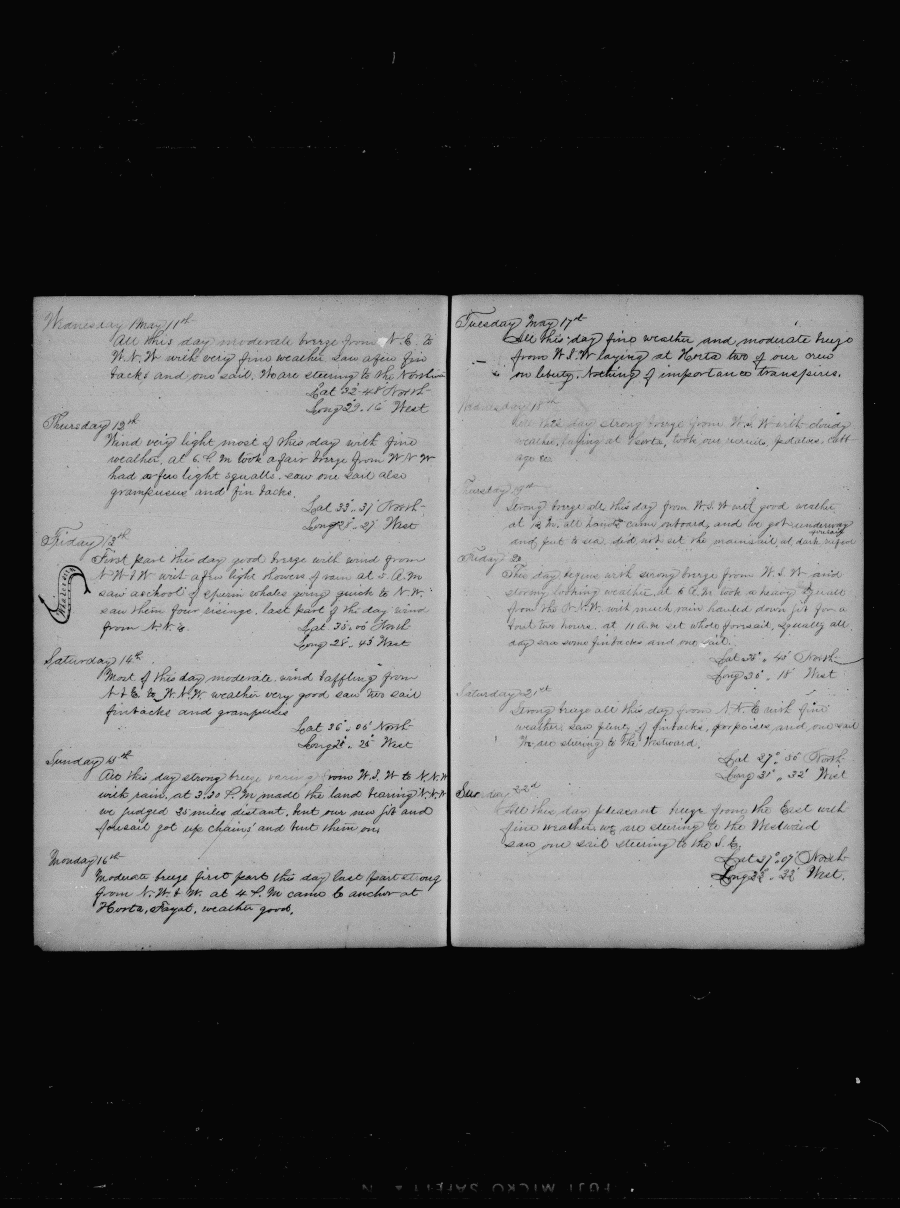 Wednesday May 11th
All this day moderate breeze from N.E. to
W.N.W with very fine weather saw a few fin
backs and one sail. We are steering to the Northward
Lat 32-48 North
Long 29.16 West
Thursday 12th
Wind very light most of this day with fine
weather, at 6. P.M took a fair breeze from W N W
had a few light squalls. saw one sail also
grampuses and fin backs.
Lat 33°.31' North
Long 28°.27' West
Friday 13th
First part this day good breeze with wind from
N.W & W with a few light showers of rain at 5 A.M
saw a school of sperm whales going quick to N.W.
saw them four risings. last part of the day wind
from N.N.E.
Lat. 35.00 North
Long 28.43 West
Saturday 14th
Most of this day moderate. wind baffling from
N & E to W.N.W. weather very good saw two sail
finbacks and grampuses
Lat 36°.06' North
Long 28°.25' West
Sunday 15th
All this day strong breeze varying from W.S.W to N.N.W
with rain, at 3.30 P.M made the land bearing N.N.W
we judged 35 miles distant, bent our new jib and
foresail got up chains and bent them on,
Monday 16th
Moderate breeze first part this day last part strong
from N.W. & W. at 4 P.M came to anchor at
Horta, Fayal, weather good,
Tuesday May 17th
All this day fine weather and moderate breeze
from W.S.W laying at Horta two of our crew
on liberty. Nothing of importance transpires.
Wednesday 18th
All this day strong breeze from W.S.W with cloudy
weather, laying at Horta, took our recruits, potatoes, cabb
age &c.
Thursday 19th
Strong breeze all this day from W.S.W with good weather
at 12 M. all hands came onboard, and we got underway
and put to sea, did not set the mainsail, at dark reefed
foresail
Friday 20
This day begins with strong breeze from W.S.W and
stormy looking weather, at 6 A.M took a heavy squall
from the N.N.W. with much rain hauled down jib for a
bout two hours. at 11 A.M set whole foresail, squally all
day saw some finbacks and one sail.
Lat 38°. 45' North
Long 30°. 18' West
Saturday 21st
Strong breeze all this day from N.N.E with fine
weather saw plenty of finbacks, porpoises, and one sail
We are steering to the Westward.
Lat 37°. 50' North
Long 31°. 32' West
Sunday 22d
All this day pleasant breeze from the East with
fine weather, we are steering to the Westward
saw one sail steering to the S.E,
Lat 37°.07' North
Long 32°.22' West.
FUJI MICRO SAFETY